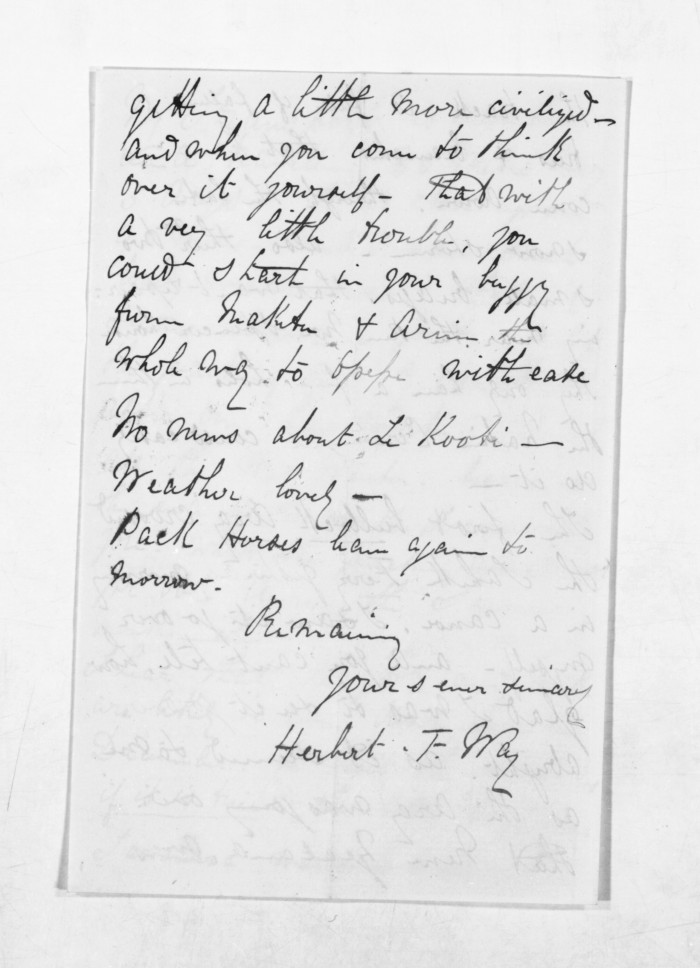 getting a little more civilized –
and when you come to think
over it yourself – That with
a very little trouble, you
could start in your buggy
from Maketu & drive the
whole way to Opepe with ease
No news about Te Kooti –
Weather lovely –
Pack Horses leave again to
morrow.
Remaining
Yours ever sincerely
Herbert . F. Way